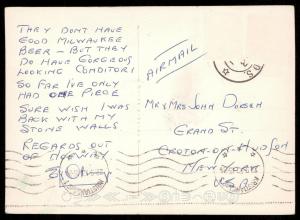 THEY DONT HAVE
GOOD MILWAUKEE
BEER - BUT THEY
DO HAVE GORGEOUS
LOOKING CONDITORI
SO FAR I'VE ONLY
HAD ONE PIECE
SURE WISH I WAS
BACK WITH MY
STONE WALLS
REGARDS OUT
OF NORWAY
AIRMAIL
MR + MRS JOHN
GRAND ST.
CROTON-ON-HUDSON
NEW YORK
USA